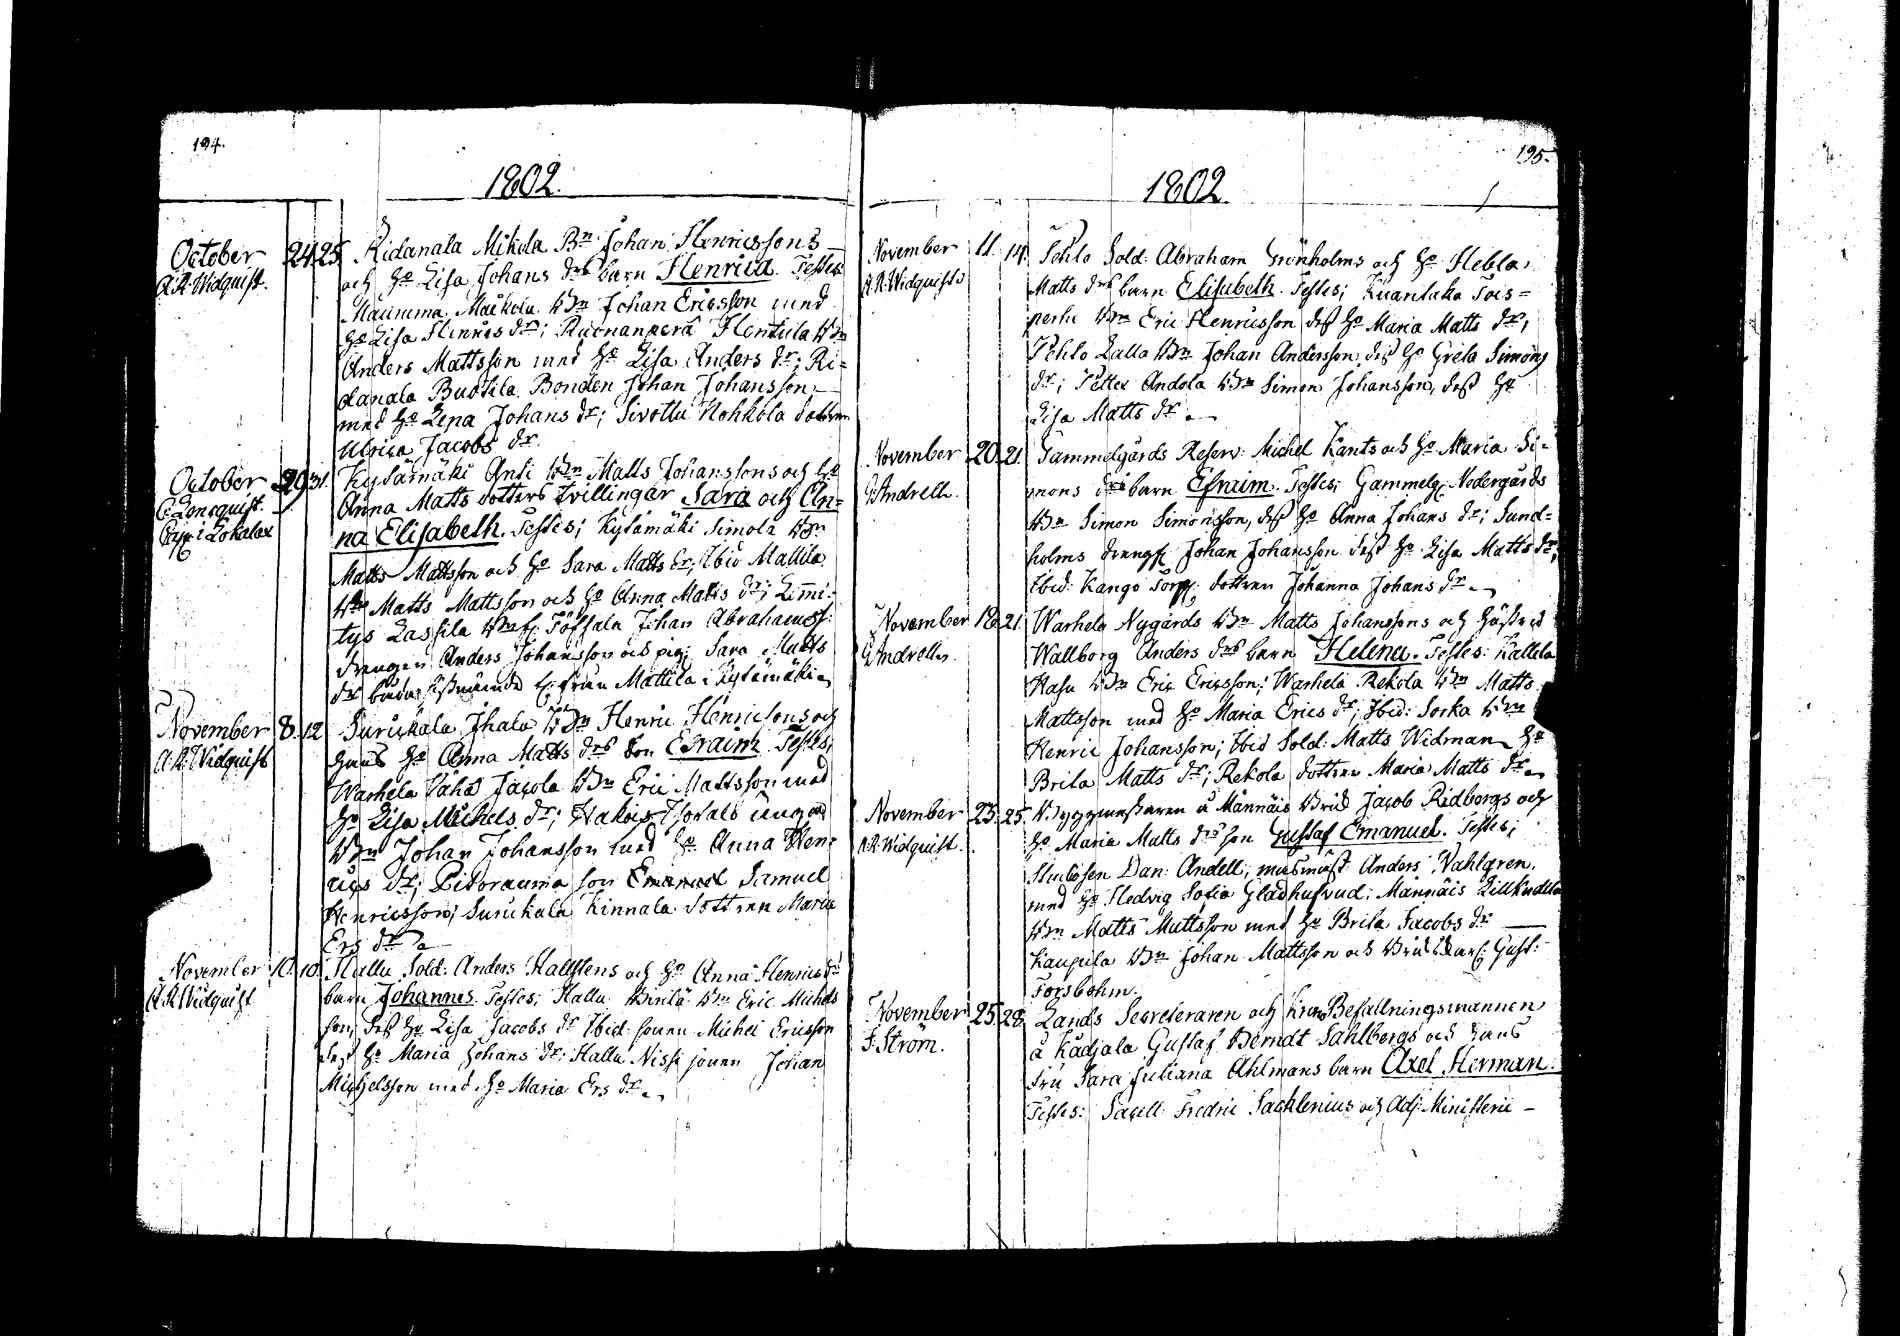 194.
1802.
October 24. 25. Ridanala Mikola Bn Johan Henricssons
A. R. Widquist. och ho Lisa Johans drs barn Henrica. Testes:
Mauruma Maikola Bn Johan Ericsson med
ho Lisa Hinrics dr; Ruonanperä Hentula Bn
Anders Mattsson med ho Lisa Anders dr; Ri=
danala Buskila Bonden Johan Johansson
med ho Lena Johans dr; Sivottu Kohkola dottren
Ulrica Jacobs dr.
October 29. 31. Kylämäki Anti Bn Matts Johanssons och ho
C. Lönnquist. Anna Matts dotters tvillingar Sara och An=
Cap. i Lokalax na Elisabeth. Testes; Kylämäki Simola Bn
Matts Mattsson och ho Sara Matts dr; Ibid Mattila
Bn Matts Mattsson och ho Anna Matts dr; Lemi=
tys Lassila Johan Abrahamss:
drengen Anders Johansson och pig: Sara Matts
dr från Mattila i Kylämäki
November 8. 12. Surukala Jhala Bn Henric Henricsons och
A. R. Widquist hans ho Anna Matts drs son Efraim. Testes;
Warhela Vähä Jacola Bn Eric Mattsson med
ho Lisa Michels dr; unga
Bn Johan Johansson med ho Anna Hen=
rics dr; Pitorauma son Emanuel Samuel
Henricsson; Surukala Kinnala dottren Maria
Ers dr
November 10. 10. Hallu Sold: Anders Hallstens och ho Anna Henrics drs
A. R. Widquist barn Johannes. Testes; Hallu Bn Eric Michels
son, dess ho Lisa Jacobs dr Ibid sonen Michel Ericsson
dess ho Maria Johans dr; Hallu Nissi sonen Johan
Michelsson med ho Maria Ers dr
195.
1802.
November 11. 14. Pehlo Sold: Abraham Grönholms och ho Hebla
A. R. Widquist Matts drs barn Elisabeth. Testes; Kuanlaka Sois=
perhe Bn Eric Henricsson dess ho Maria Matts dr;
Pehlo Lalla Bn Johan Andersson dess ho Greta Simons
dr; Petter Andola Bn Simon Johansson, dess ho
Lisa Matts dr
November 20. 21. Gammelgårds Reserv: Michel Kants och ho Maria Si=
G. Andrell. mons drs barn Efraim. Testes; Gammelg: Nedergårds
Bn Simon Simonsson, dess ho Anna Johans dr; Sund=
holms Johan Johansson dess ho Lisa Matts dr;
Ibid: Kango Torp: dottren Johanna Johans dr
November 18. 21. Warhela Nygårds Bn Matts Johanssons och hustrus
G. Andrell. Wallborg Anders drs barn Helena. Testes: Kallela
Hasu Bn Eric Ericsson; Warhela Rekola Bn Matts
Mattsson med ho Maria Erics dr; Ibid: Sorka Bn
Henric Johansson; Ibid Sold: Matts Widman ho
Brita Matts dr; Rekola dottren Maria Matts dr
November 23. 25. Byggmästaren å Männäis Bruk Jacob Ridbergs och
A. R. Widquist. ho Maria Matts drs son Gustaf Emanuel. Testes;
Dan: Andell; Anders Wahlgren,
med ho Hedvig Sofia Gladhufvud; Männäis Lillkudila
Bn Matts Mattsson med ho Brita Jacobs dr
Kaupila Bn Johan Mattsson och Gust:
Forsbohm.
November 25. 28. Lands Secreteraren och Krono Befallningsmannen
F. Ström. å Kådjala Gustaf Berndt Sahlbergs och hans
Fru Sara Juliana Ahlmans barn Axel Herman.
Testes: Fredric Sacklenius och Adj: Ministerii